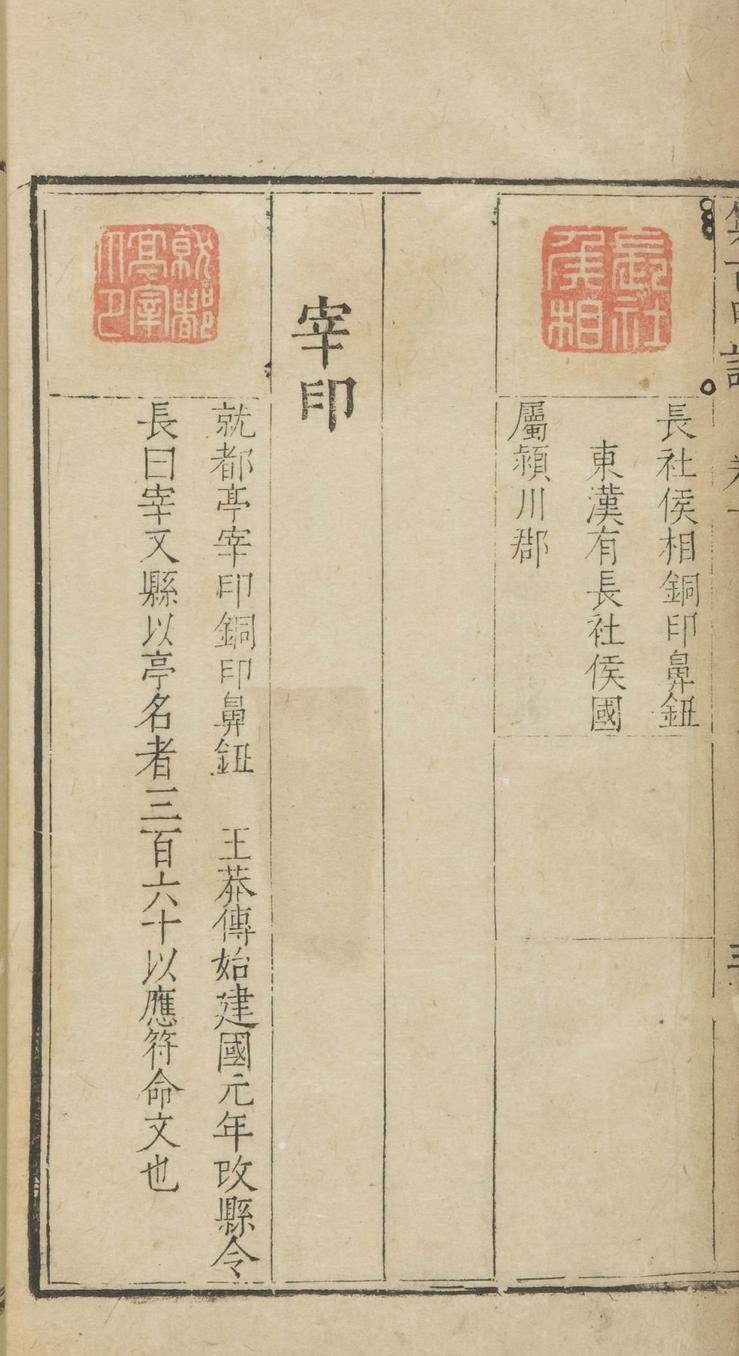 長社侯相
長社侯相銅印鼻鈕
東漢有長社侯國
屬潁川郡
宰印
就都亭宰印
就都亭宰印銅印鼻鈕　王莽傳始建國元年改縣令
長曰宰又縣以亭名者三百六十以應符命文也